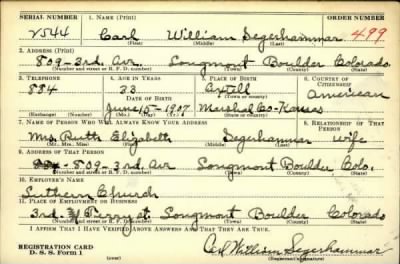 SERIAL NUMBER 1. NAME (Print) ORDER NUMBER
2544 Carl William Segerhammar 499
(First) (Middle) (Last)
2. ADDRESS (Print)
809-3rd. Av. Longmont Boulder Colorado
(Number and street or R. F. D. number) (Town) (County) (State)
3. TELEPHONE 4. AGE IN YEARS 5. PLACE OF BIRTH 6. COUNTRY OF CITIZENSHIP
884 33 Axtell American
DATE OF BIRTH (Town or county)
June-15-1907 Marshall Co-Kansas
(Exchange) (Number) (Mo.) (Day) (Yr.) (State or country)
7. NAME OF PERSON WHO WILL ALWAYS KNOW YOUR ADDRESS 8. RELATIONSHIP OF THAT PERSON
Mrs. Ruth Elizabeth Segerhammar Wife
(Mr., Mrs., Miss) (First) (Middle) (Last)
9. ADDRESS OF THAT PERSON
809-3rd. Av Longmont Boulder Colo.
(Number and street or R. F. D. number) (Town) (County) (State)
10. EMPLOYER'S NAME
Luthern Church
11. PLACE OF EMPLOYMENT OR BUSINESS
3rd. & Terry st. Longmont Boulder Colorado
(Number and street or R. F. D. number) (Town) (County) (State)
I AFFIRM THAT I HAVE VERIFIED ABOVE ANSWERS AND THAT THEY ARE TRUE.
REGISTRATION CARD
D. S. S. Form 1
Carl William Segerhammar
(Registrant's signature)